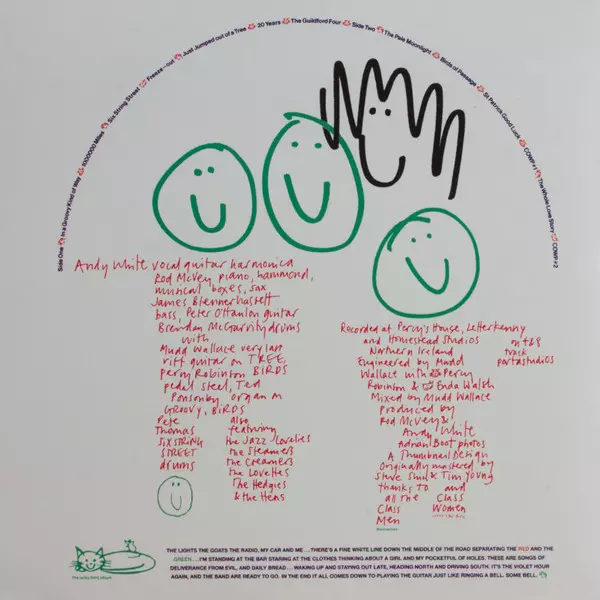 Side One In a Groovy Kind of Way 1000000 Miles Six String Street Freeze-out Just Jumped out of a Tree 20 Years The Guildford Four Side Two The Pale Moonlight Birds of Passage St Patrick Good Luck COWP#1 The Whole Love Story COWP#2
Andy White vocal guitar harmonica
Rod McVey piano, hammond,
musical boxes, sax
James Blennerhassett
bass, Peter O'Hanlon guitar
Brendan McGarrity drums
with
Mudd Wallace very last
riff guitar on TREE,
Percy Robinson BIRDS
pedal steel, Ted
Ponsonby organ on
GROOVY, BIRDS
Pete
Thomas
SIX STRING
STREET
drums
also
featuring
the Jazz Lovelies
the Steamers
the Creamers
the Lovettes
The Hedgies
& the Hens
Recorded at Percy's House, Letterkenny
and Homestead Studios
Northern Ireland
on 4&8
track
portastudios
Engineered by Mudd
Wallace with Percy
Robinson & Enda Walsh
Mixed by Mudd Wallace
produced by
Rod McVey &
Andy White
Adrian Boot photos
A Thumbnail Design
Originally mastered by
Steve & Tim Young
thanks to and
all the Class
Class Women
Men
The witty Bard album
THE LIGHTS THE GOATS THE RADIO, MY CAR AND ME...THERE'S A FINE WHITE LINE DOWN THE MIDDLE OF THE ROAD SEPARATING THE RED AND THE
GREEN...I'M STANDING AT THE BAR STARING AT THE CLOTHES THINKING ABOUT A GIRL AND MY POCKETFUL OF HOLES. THESE ARE SONGS OF
DELIVERANCE FROM EVIL, AND DAILY BREAD...WAKING UP AND STAYING OUT LATE, HEADING NORTH AND DRIVING SOUTH. IT'S THE VIOLET HOUR
AGAIN, AND THE BAND ARE READY TO GO. IN THE END IT ALL COMES DOWN TO PLAYING THE GUITAR JUST LIKE RINGING A BELL. SOME BELL.